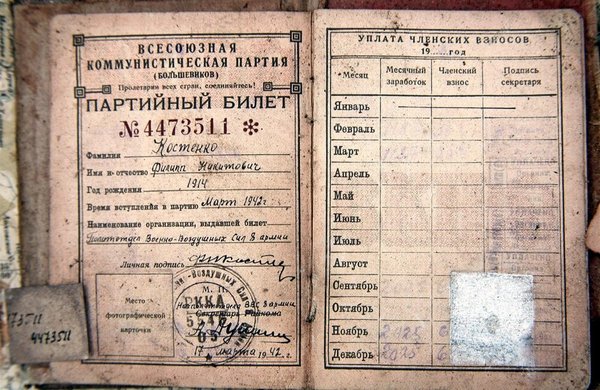 ВСЕСОЮЗНАЯ
КОММУНИСТИЧЕСКАЯ ПАРТИЯ
(БОЛЬШЕВИКОВ)
Пролетарии всех стран, соединяйтесь!
ПАРТИЙНЫЙ БИЛЕТ
№4473511 *
Фамилия Костенко
Имя и отчество Филипп Никитович
Год рождения 1914
Время вступления в партию Март 1942 г.
Наименование организации, выдавшей билет
Политотдел Военно-Воздушных Сил 8 армии
Личная подпись
М. П.
Политотдел ВВС 8 армии
Секретарь Райкома
Место
фотографической
карточки
РККА
17 марта 1942 г.
73511
4473511
УПЛАТА ЧЛЕНСКИХ ВЗНОСОВ
19......год
Месяц Месячный заработок Членский взнос Подпись секретаря
Январь
Февраль
Март
Апрель
Май
Июнь
Июль
Август
Сентябрь
Октябрь
Ноябрь
Декабрь